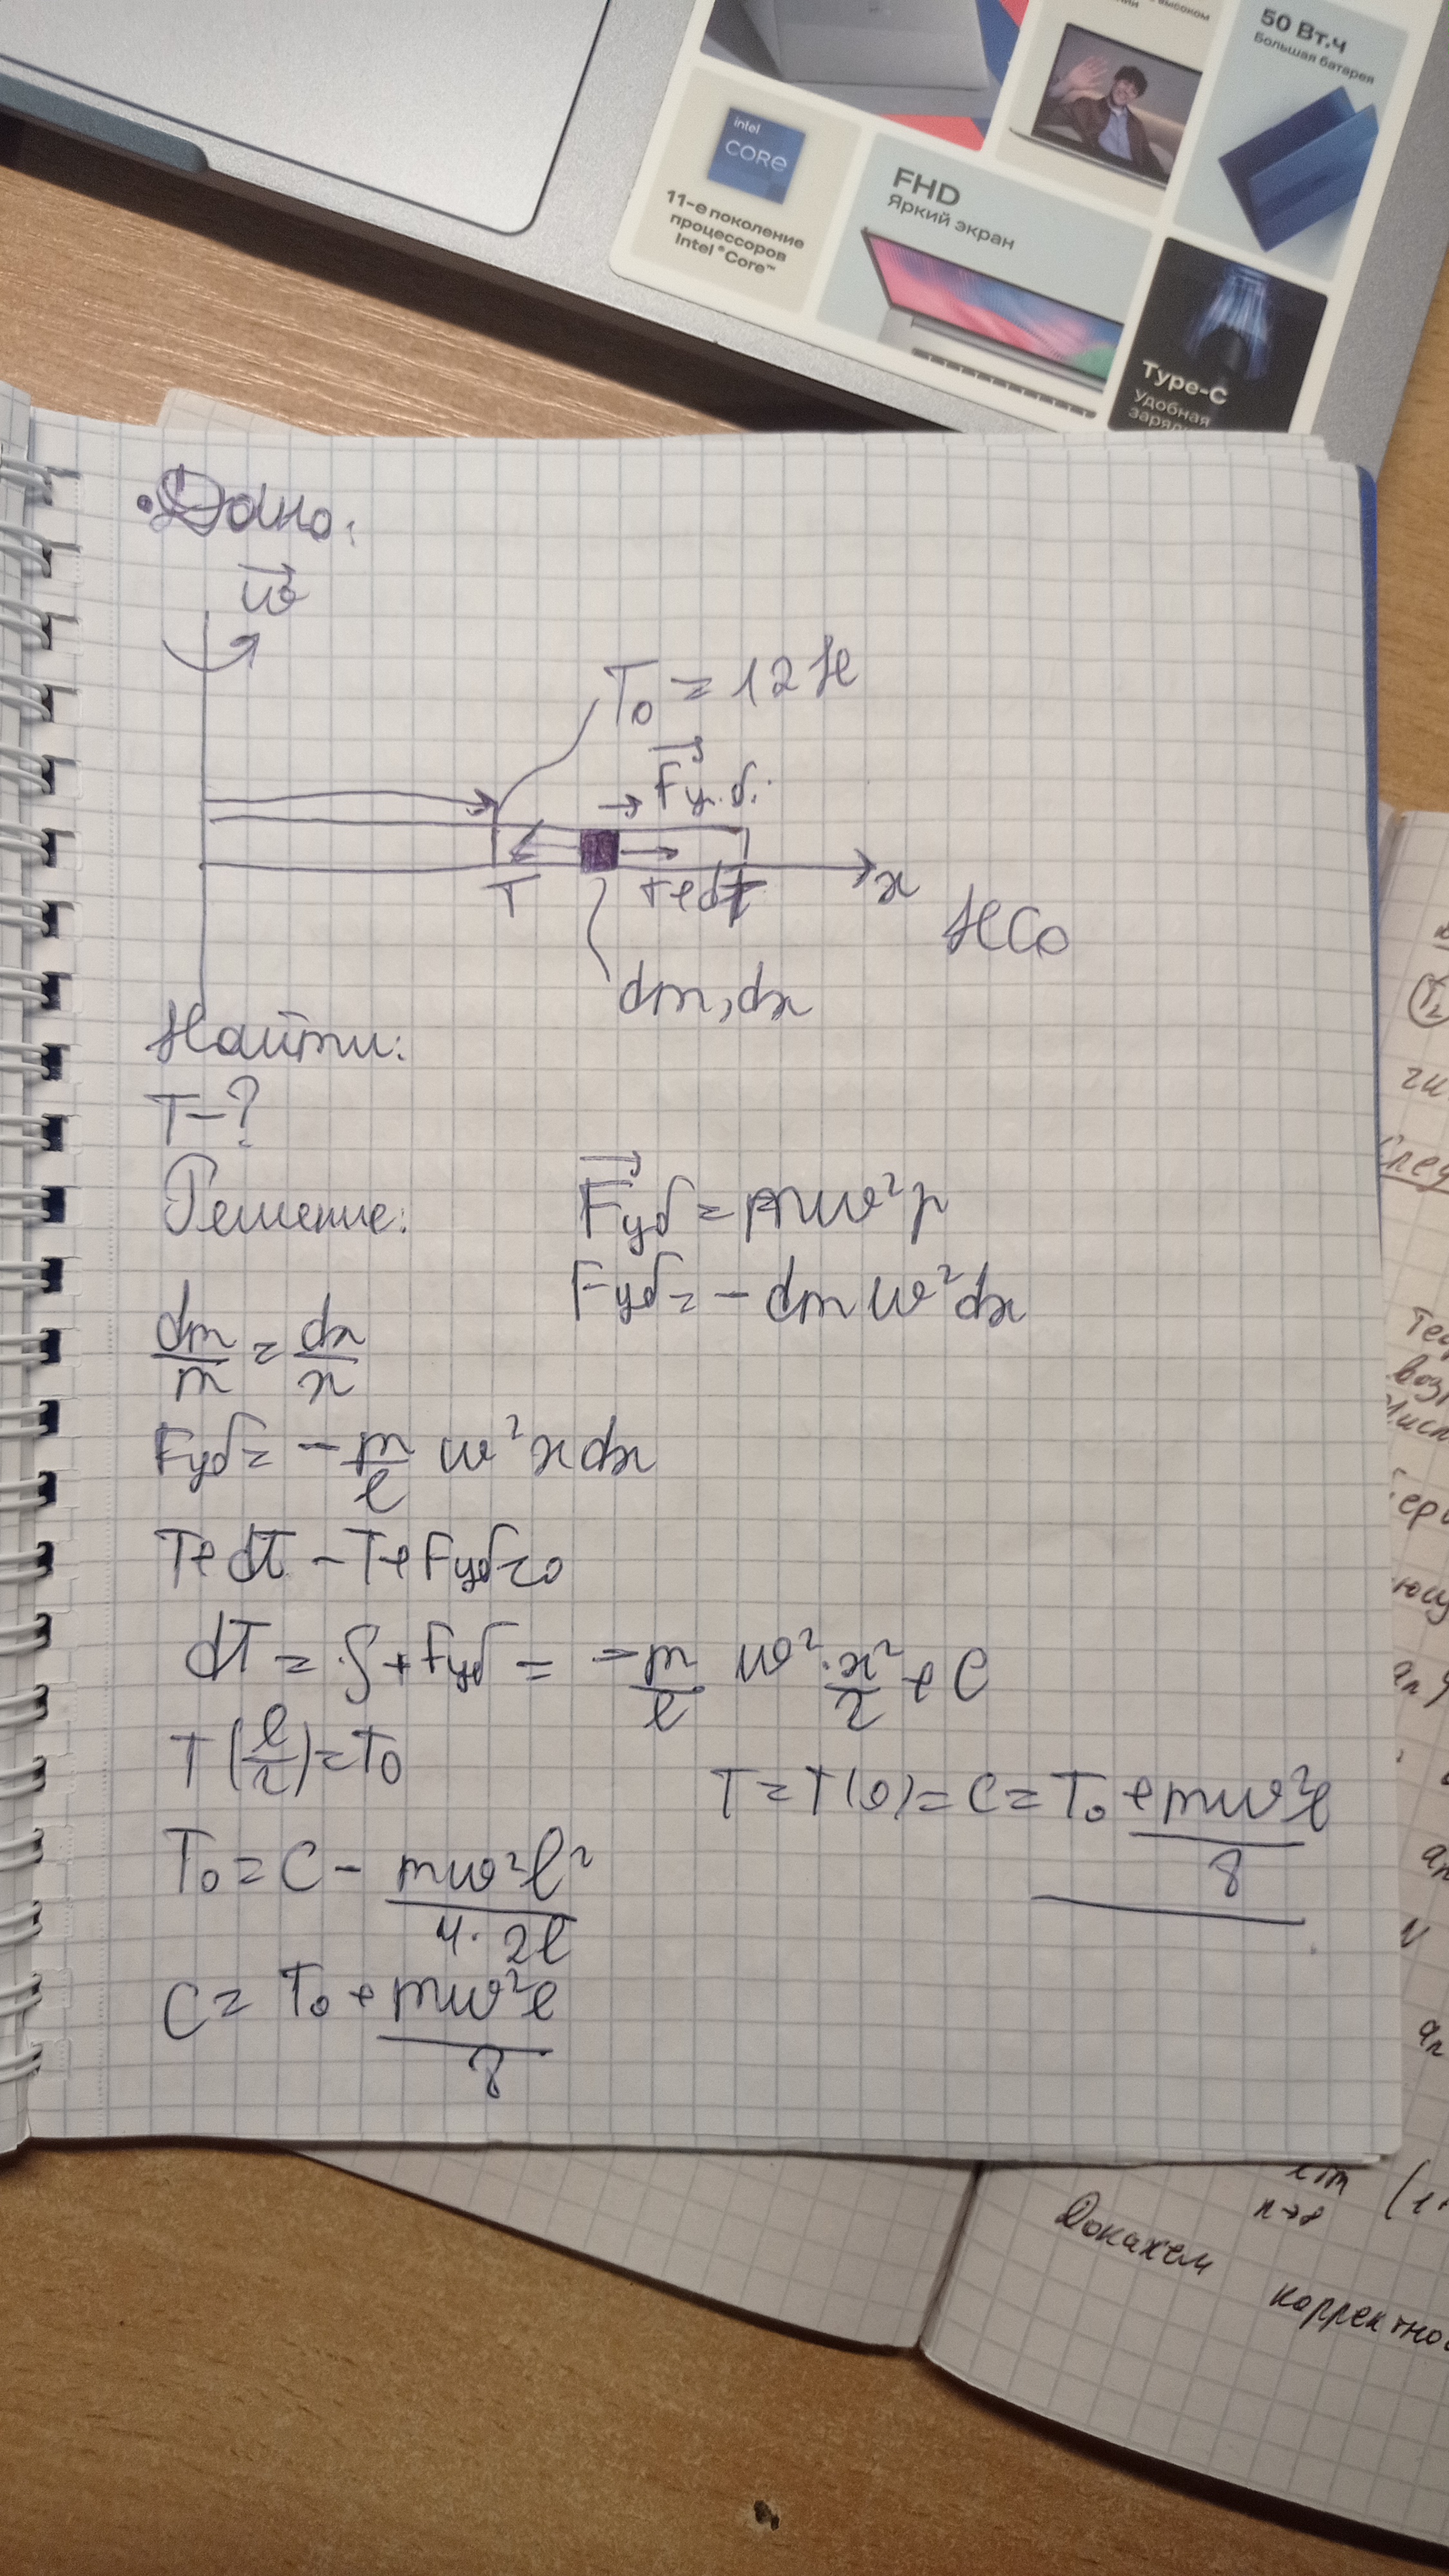 высоком
50 Вт.ч
Большая батарея
intel
CORE
11-е поколение
процессоров
Intel® Core™
FHD
Яркий экран
Type-C
Удобная
заряд
Дано:
ω⃗
T₀ = 12 Н
F⃗у.б.
T
T+dT
x
НСО
dm, dx
Найти:
T-?
Решение:
F⃗уб = mω²r
Fуб = - dm ω² dx
dm/m = dx/x
Fуб = - m/l ω² x dx
T+dT - T+Fуб=0
dT = ∫+Fуб = -m/l ω² · x²/2 + C
T(l/2)=T₀
T = T(0) = C = T₀ + mω²l/8
T₀ = C - mω²l²/4·2l
C = T₀ + mω²l/8
lim (1+
n→∞
Докажем
корректно